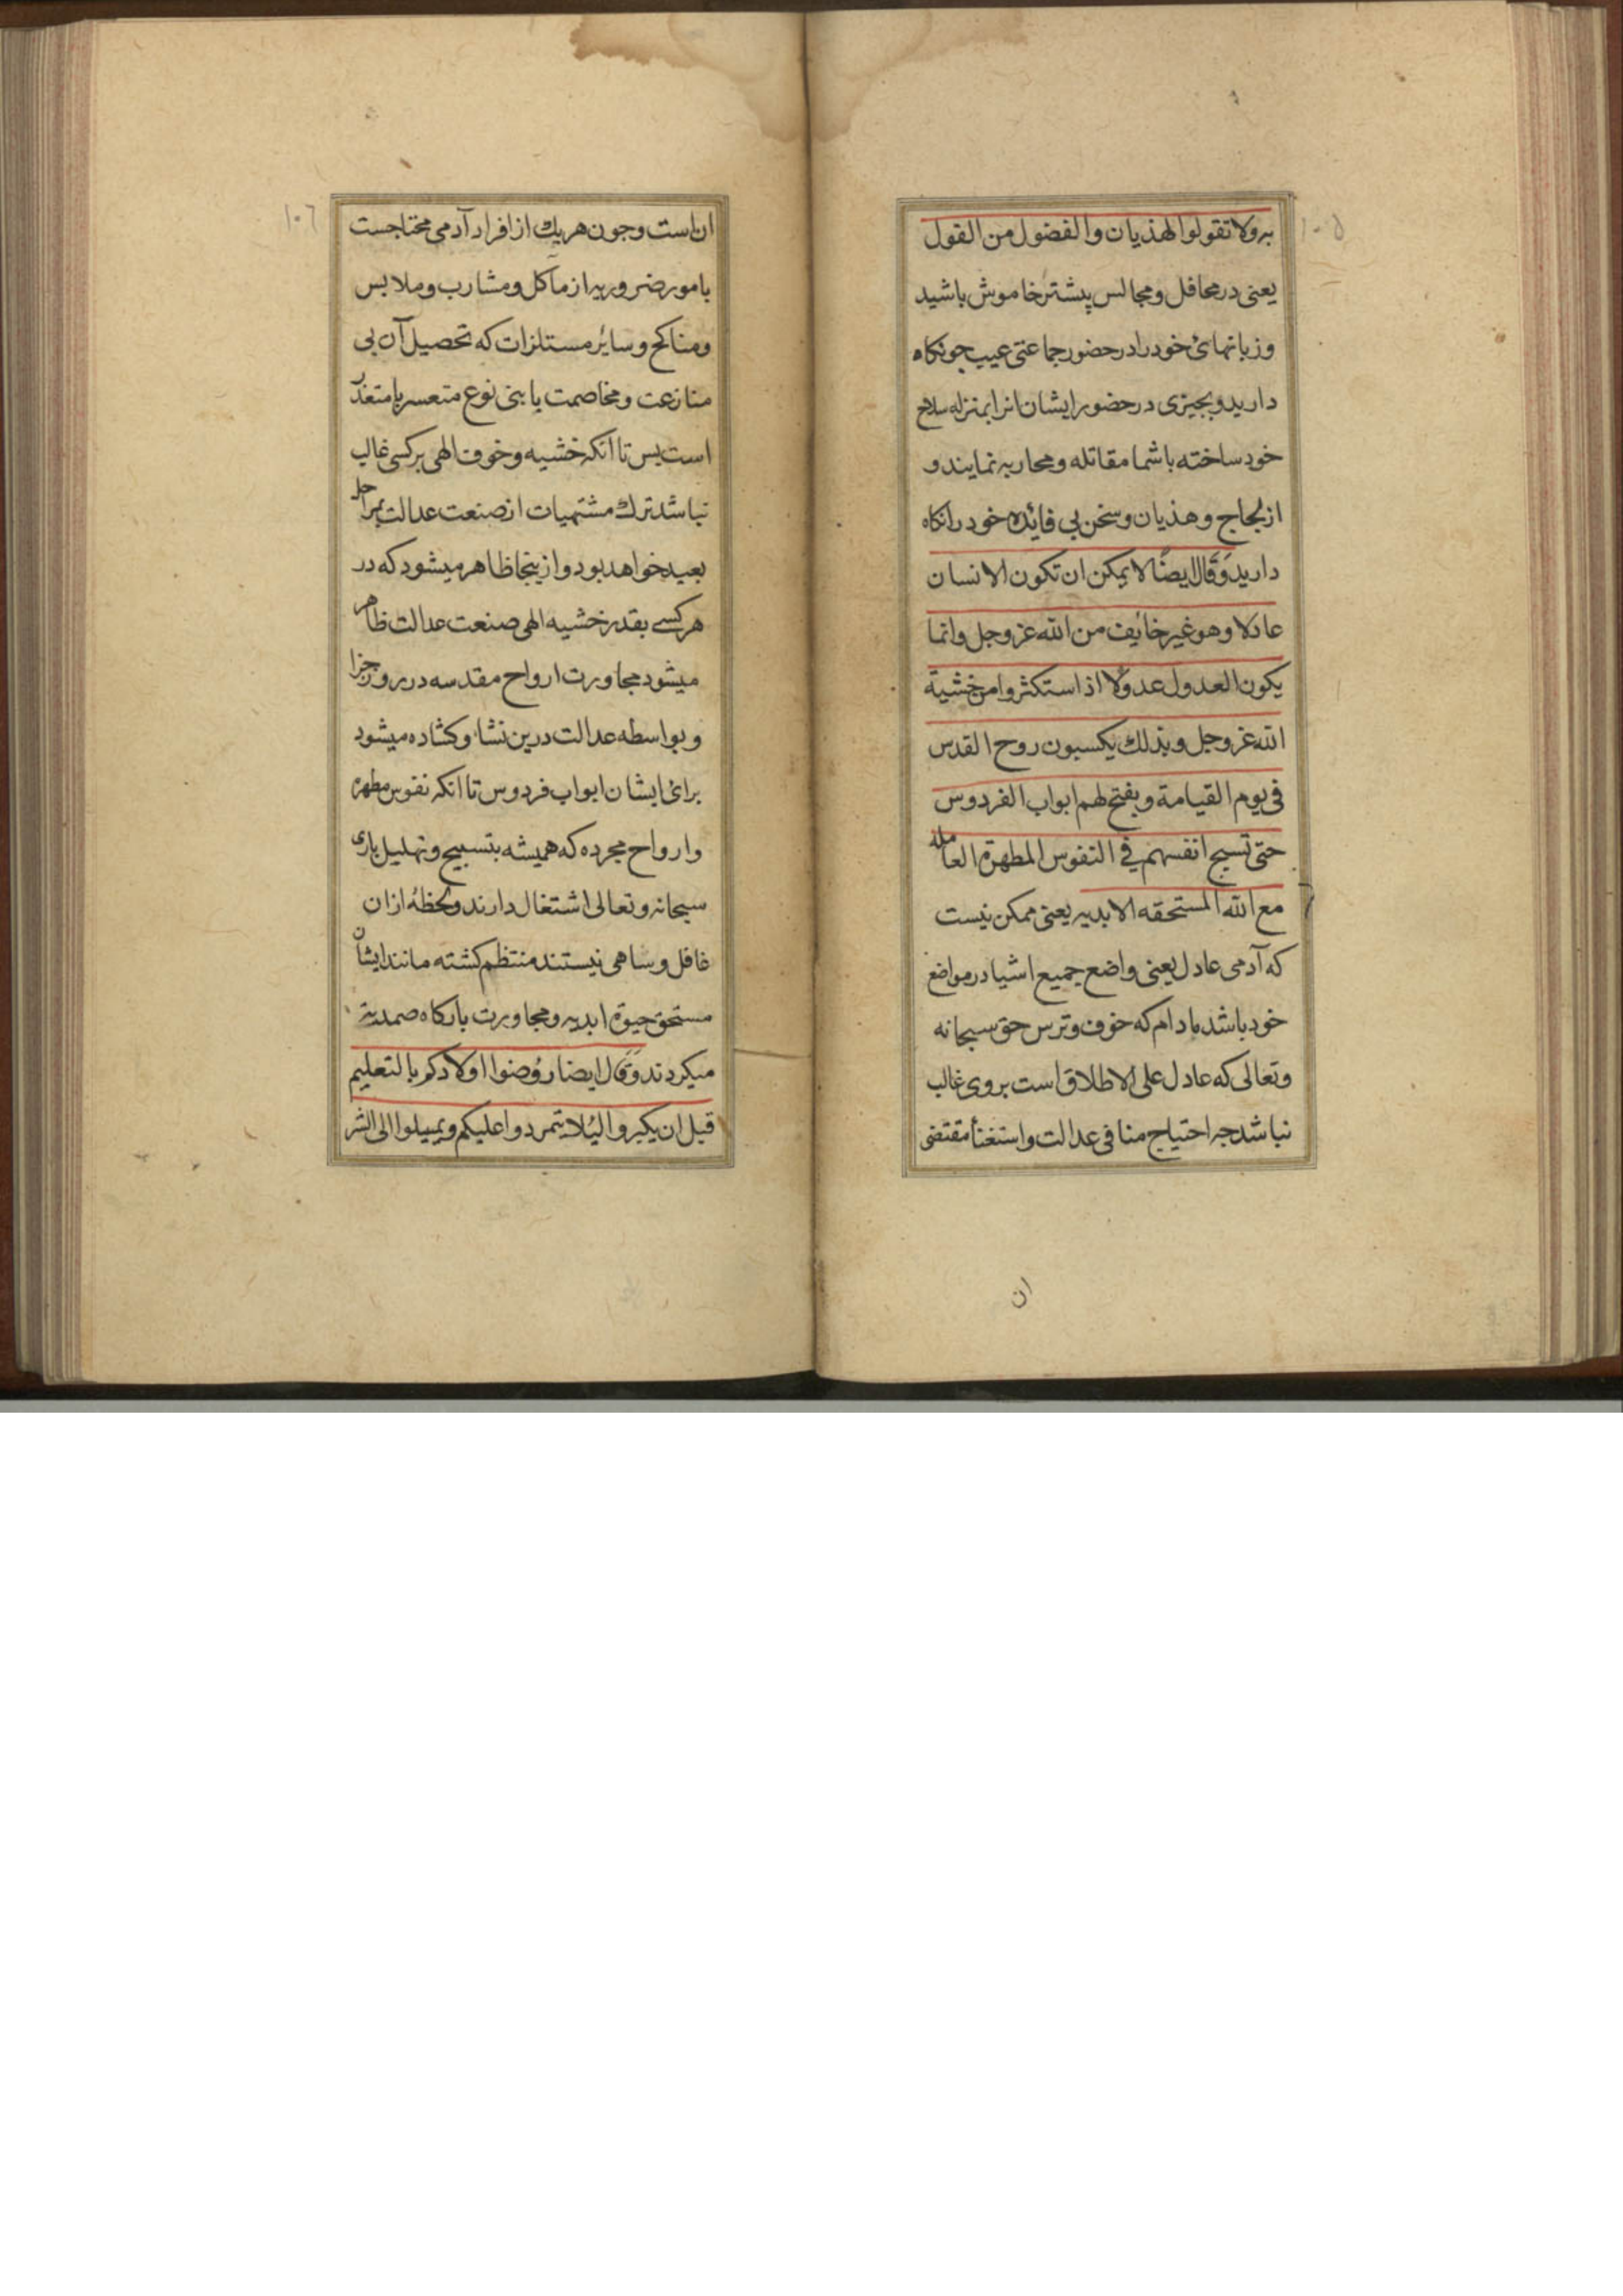 ۱۰۵
به ولا تقولوا لهذيان والفضول من القول
يعنى در محافل ومجالس پيشتر خاموش باشيد
وزبانهائ خود را در حضور جماعتى عيب جو نكاه
داريد وبچيزى در حضور ايشان انرا بمنزله سلاح
خود ساخته باشما مقاتله ومحاربه نمايند و
از لجاج وهذيان وسخن بى فائده خود را نكاه
داريد وقال ايضًا لا يمكن ان تكون الانسان
عادلا وهو غير خائف من الله عز وجل وانما
يكون العدول عدولا اذا استكثروا من خشية
الله عز وجل وبذلك يكسبون روح القدس
فى يوم القيامة ويفتح لهم ابواب الفردوس
حتى تسبح انفسهم فى النفوس المطهرة العامله
مع الله المستحقه الابديه يعنى ممكن نيست
كه آدمى عادل يعنى واضع جميع اشيا در مواضع
خود باشد مادام كه خوف وترس حق سبحانه
وتعالى كه عادل على الاطلاق است بروى غالب
نباشد چه احتياج منافى عدالت واستغنا مقتضى
ان
۱۰٦
ان است وچون هريك از افراد آدمى محتاجست
بامور ضروريه از مآكل ومشارب وملابس
ومناكح وسائر مستلزات كه تحصيل آن بى
منازعت ومخاصمت يا بنى نوع متعسر يا متعذر
است پس تا انكه خشيه وخوف الهى بركسى غالب
نباشد ترك مشتهيات از صنعت عدالت بمراحل
بعيد خواهد بود وازينجا ظاهر ميشود كه در
هر كسے بقدر خشيه الهى صنعت عدالت ظاهر
ميشود مجاورت ارواح مقدسه در روز جزا
وبواسطه عدالت درين نشاء وكشاده ميشود
برائ ايشان ابواب فردوس تا انكه نفوس مطهره
وارواح مجرده كه هميشه بتسبيح وتهليل بارى
سبحانه وتعالى اشتغال دارند ولحظهٔ ازان
غافل وساهى نيستند منتظم كشته مانند ايشان
مستحق حيوة ابديه ومجاورت باركاه صمديت
ميكردند وقال ايضا روضوا اولادكم بالتعليم
قبل ان يكبروا ليُلا يتمردوا عليكم ويميلوا الى الشر